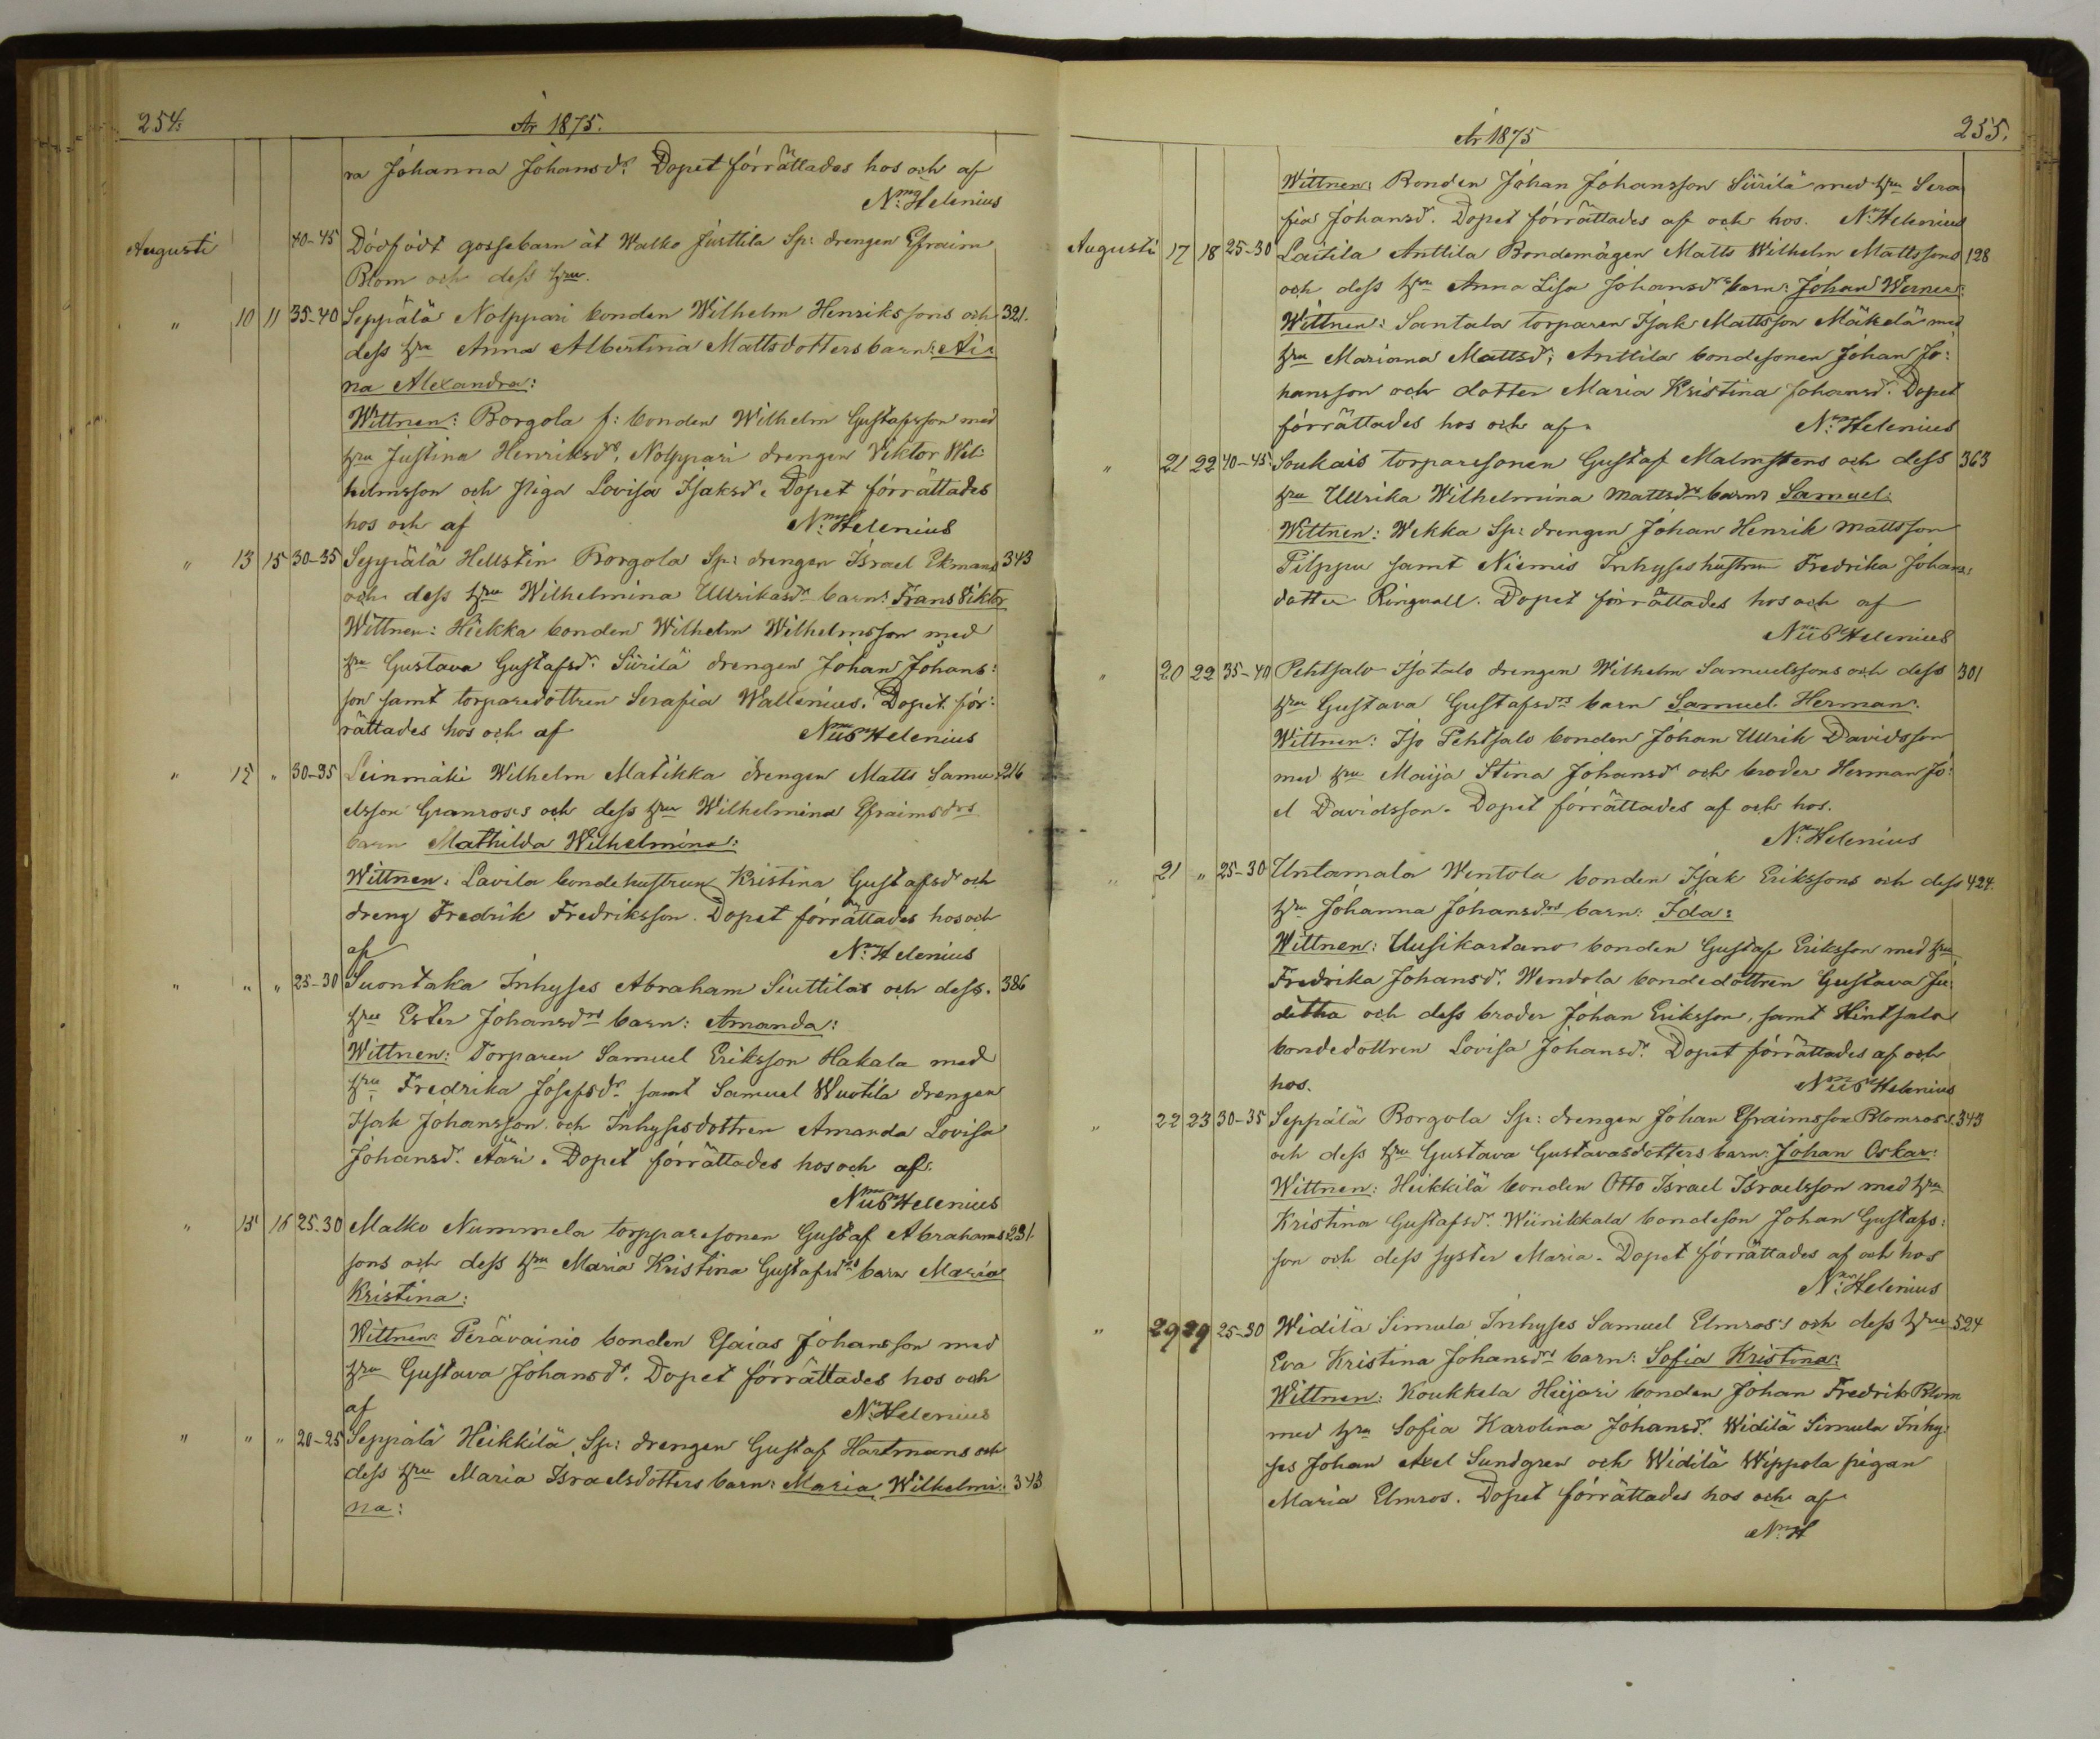 254.
År 1875.
ra Johanna Johansdr. Dopet förrättades hos och af
N. Helenius
Augusti 40-45 Dödfödt gossebarn åt Walko Justtila Sp: drengen Efraim
Blom och dess hru.
" 10 11 35-40 Seppälä Nolppari bonden Wilhelm Henrikssons och 321.
dess hru Anna Albertina Mattsdotters barn: Ai:
na Alexandra:
Wittnen: Borgola f: bonden Wilhelm Gustafsson med
hru Justina Henriksdr, Nolppari drengen Viktor Wil:
helmsson och piga Lovisa Isaksdr. Dopet förrättades
hos och af N. Helenius
" 13 15 30-35 Seppälä Hellstin Borgola Sp: drengen Israel Ekmans 343
och dess hru Wilhelmina Ullrikasdr barn: Frans Viktor
Wittnen: Hiekka bonden Wilhelm Wilhelmsson med
hru Gustava Gustafsdr. Siirilä drengen Johan Johans:
son samt torparedottren Serafia Wallenius. Dopet för:
rättades hos och af Nius Helenius
" 12 " 30-35 Leinmäki Wilhelm Matikka drengen Matts Samu: 216
elsson Granroses och dess hru Wilhelmina Efraimsdrs
barn Mathilda Wilhelmina:
Wittnen: Lavila bondehustrun Kristina Gustafsdr och
dreng Fredrik Fredriksson. Dopet förrättades hos och
af N. Helenius
" " " 25-30 Suontaka Inhyses Abraham Siuttilas och dess. 386
hru Ester Johansdrs barn: Amanda:
Wittnen: Torparen Samuel Eriksson Hakala med
hru Fredrika Josefsdr samt Samuel Wuotila drengen
Isak Johansson och Inhysesdottren Amanda Lovisa
Johansdr. Ääri. Dopet förrättades hos och af.
Nius Helenius
" 15 16 25-30 Malko Nummela torpparesonen Gustaf Abrahams 231.
sons och dess hru Maria Kristina Gustafsdrs barn Maria
Kristina:
Wittnen: Perävainio bonden Esaias Johansson med
hru Gustava Johansdr. Dopet förrättades hos och
af N. Helenius
" " " 20-25 Seppälä Heikkilä Sp: drengen Gustaf Hartmans och
dess hru Maria Israelsdotters barn: Maria Wilhelmi: 343
na:
År 1875
255.
Wittnen: Bonden Johan Johansson Siirilä med hru Sera
fia Johansd. Dopet förrättades af och hos. N. Helenius
Augusti 17 18 25-30 Laitila Anttila Bondemågen Matts Wilhelm Mattssons 128
och dess hru Anna Lisa Johansdrs barn: Johan Werner:
Wittnen: Santala torparen Isak Mattsson Mäkelä med
hru Mariana Mattsd; Anttila bondesonen Johan Jo:
hansson och dotter Maria Kristina Johansd. Dopet
förrättades hos och af N. Helenius
" 21 22 40-45 Soukais torparesonen Gustaf Malmstens och dess 363
hru Ullrika Wilhelmina Mattsdrs barn Samuel.
Wittnen: Wekka Sp: drengen Johan Henrik Mattsson
Pilppu samt Niemis Inhyseshustrun Fredrika Johans:
dotter Ringvall. Dopet förrättades hos och af
Nius Helenius
" 20 22 35-40 Pehtsalo Isotalo drengen Wilhelm Samuelssons och dess 301
hru Gustava Gustafsdrs barn Samuel Herman.
Wittnen: Iso Pehtsalo bonden Johan Ullrik Davidsson
med hru Maija Stina Johansdr och broder Herman Jo:
el Davidsson. Dopet förrättades af och hos.
N. Helenius
" 21 " 25-30 Untamala Wentola bonden Isak Erikssons och dess 424.
hru Johanna Johansdrs barn: Ida:
Wittnen: Uusikartano bonden Gustaf Eriksson med hru
Fredrika Johansd. Wendola bondedottren Gustava Ju:
ditha och dess broder Johan Eriksson, samt Hintsala
bondedottren Lovisa Johansd. Dopet förrättades af och
hos. Nius Helenius
" 22 23 30-35 Seppälä Borgola Sp: drengen Johan Efraimsson Blomros's 343
och dess hru Gustava Gustavasdotters barn Johan Oskar:
Wittnen: Heikkilä bonden Otto Israel Israelsson med hru
Kristina Gustafsd. Wiinikkala bondeson Johan Gustafs:
son och dess syster Maria. Dopet förrättades af och hos
N. Helenius
" 29 29 25-30 Widilä Simula Inhyses Samuel Elmros's och dess hru 524
Eva Kristina Johansdrs barn: Sofia Kristina:
Wittnen: Koukkela Hiijari bonden Johan Fredrik Blom
med hru Sofia Karolina Johansd. Widilä Simula Inhy:
ses Johan Axel Sundgren och Widilä Wippola pigan
Maria Elmros. Dopet förrättades hos och af
N. H